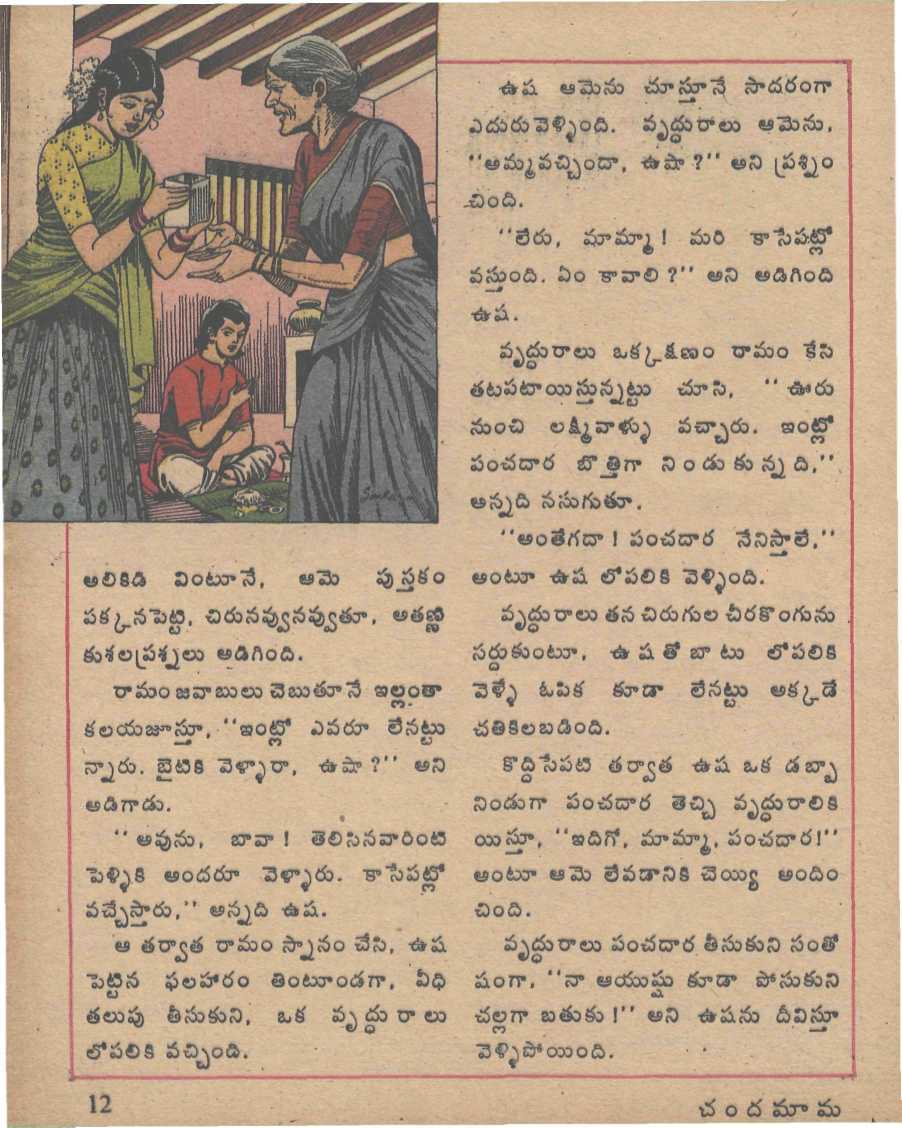 అలికిడి వింటూనే, ఆమె పుస్తకం
పక్కనపెట్టి, చిరునవ్వునవ్వుతూ, అతణ్ణి
కుశలప్రశ్నలు అడిగింది.
రామం జవాబులు చెబుతూనే ఇల్లంతా
కలయజూస్తూ, ‘‘ఇంట్లో ఎవరూ లేనట్టు
న్నారు. బైటికి వెళ్ళారా, ఉషా?’’ అని
అడిగాడు.
‘‘అవును, బావా! తెలిసినవారింటి
పెళ్ళికి అందరూ వెళ్ళారు. కాసేపట్లో
వచ్చేస్తారు,’’ అన్నది ఉష.
ఆ తర్వాత రామం స్నానం చేసి, ఉష
పెట్టిన ఫలహారం తింటూండగా, వీధి
తలుపు తీసుకుని, ఒక వృద్ధురాలు
లోపలికి వచ్చిండి.
ఉష ఆమెను చూస్తూనే సాదరంగా
ఎదురువెళ్ళింది. వృద్ధురాలు ఆమెను,
‘‘అమ్మవచ్చిందా, ఉషా?’’ అని ప్రశ్నిం
చింది.
‘‘లేరు, మామ్మా! మరి కాసేపట్లో
వస్తుంది. ఏం కావాలి?’’ అని అడిగింది
ఉష.
వృద్ధురాలు ఒక్కక్షణం రామం కేసి
తటపటాయిస్తున్నట్టు చూసి, ‘‘ఊరు
నుంచి లక్ష్మివాళ్ళు వచ్చారు. ఇంట్లో
పంచదార బొత్తిగా నిండుకున్నది,’’
అన్నది నసుగుతూ.
‘‘అంతేగదా! పంచదార నేనిస్తాలే,’’
అంటూ ఉష లోపలికి వెళ్ళింది.
వృద్ధురాలు తన చిరుగుల చీరకొంగును
సర్దుకుంటూ, ఉషతోబాటు లోపలికి
వెళ్ళే ఓపిక కూడా లేనట్టు అక్కడే
చతికిలబడింది.
కొద్దిసేపటి తర్వాత ఉష ఒక డబ్బా
నిండుగా పంచదార తెచ్చి వృద్ధురాలికి
యిస్తూ, ‘‘ఇదిగో, మామ్మా, పంచదార!’’
అంటూ ఆమె లేవడానికి చెయ్యి అందిం
చింది.
వృద్ధురాలు పంచదార తీసుకుని సంతో
షంగా, ‘‘నా ఆయుష్షు కూడా పోసుకుని
చల్లగా బతుకు!’’ అని ఉషను దీవిస్తూ
వెళ్ళిపోయింది.
12
చందమామ